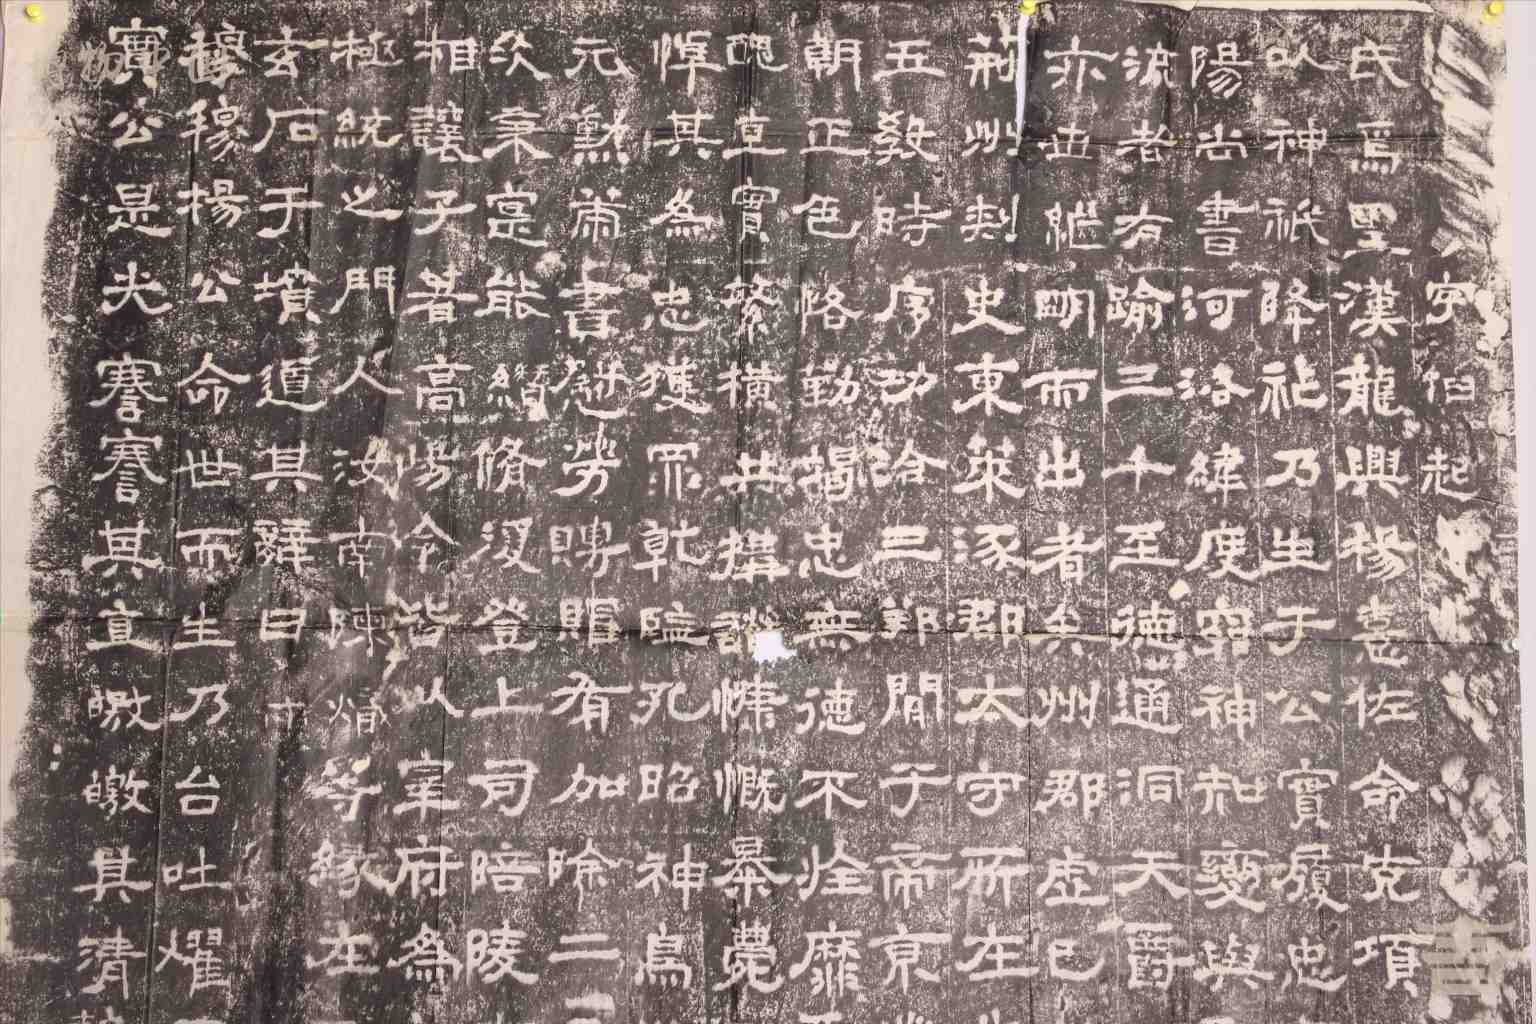 字伯起
氏焉聖漢龍興楊憙佐命克項
以神祇降祉乃生于公實履忠
陽尚書河洛緯度窮神知變與
流者有踰三千至德通洞天爵
亦世繼明而出者矣州郡虛己
荊州刺史東萊涿郡太守所在
五教時序功洽三邦聞于帝京
朝正色恪勤竭忠無德不旌靡
醜直實繁橫共構譖慷慨暴薨
悼其為忠獲罪乾監孔昭神鳥
元勳策書慰勞賵賻有加除二
次秉寔能纘脩復登上司陪陵
相讓子著高陽令皆以宰府為
極統之門人汝南陳熾等緣在
玄石于墳道其辭曰
穆穆楊公命世而生乃台吐燿
實公是光謇謇其直皦皦其清